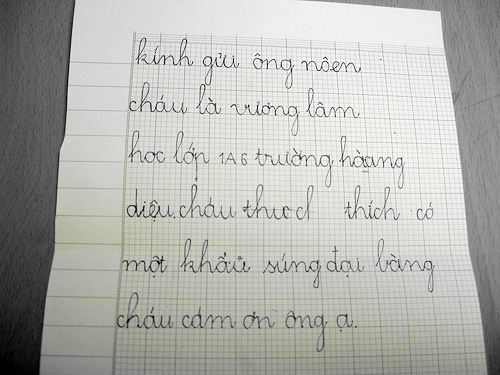 kính gửi ông nôen
cháu là vương lâm
học lớp 1A6 trường hoàng
diệu. cháu thưc thích có
một khẩu súng đại bàng
cháu cám ơn ông ạ.